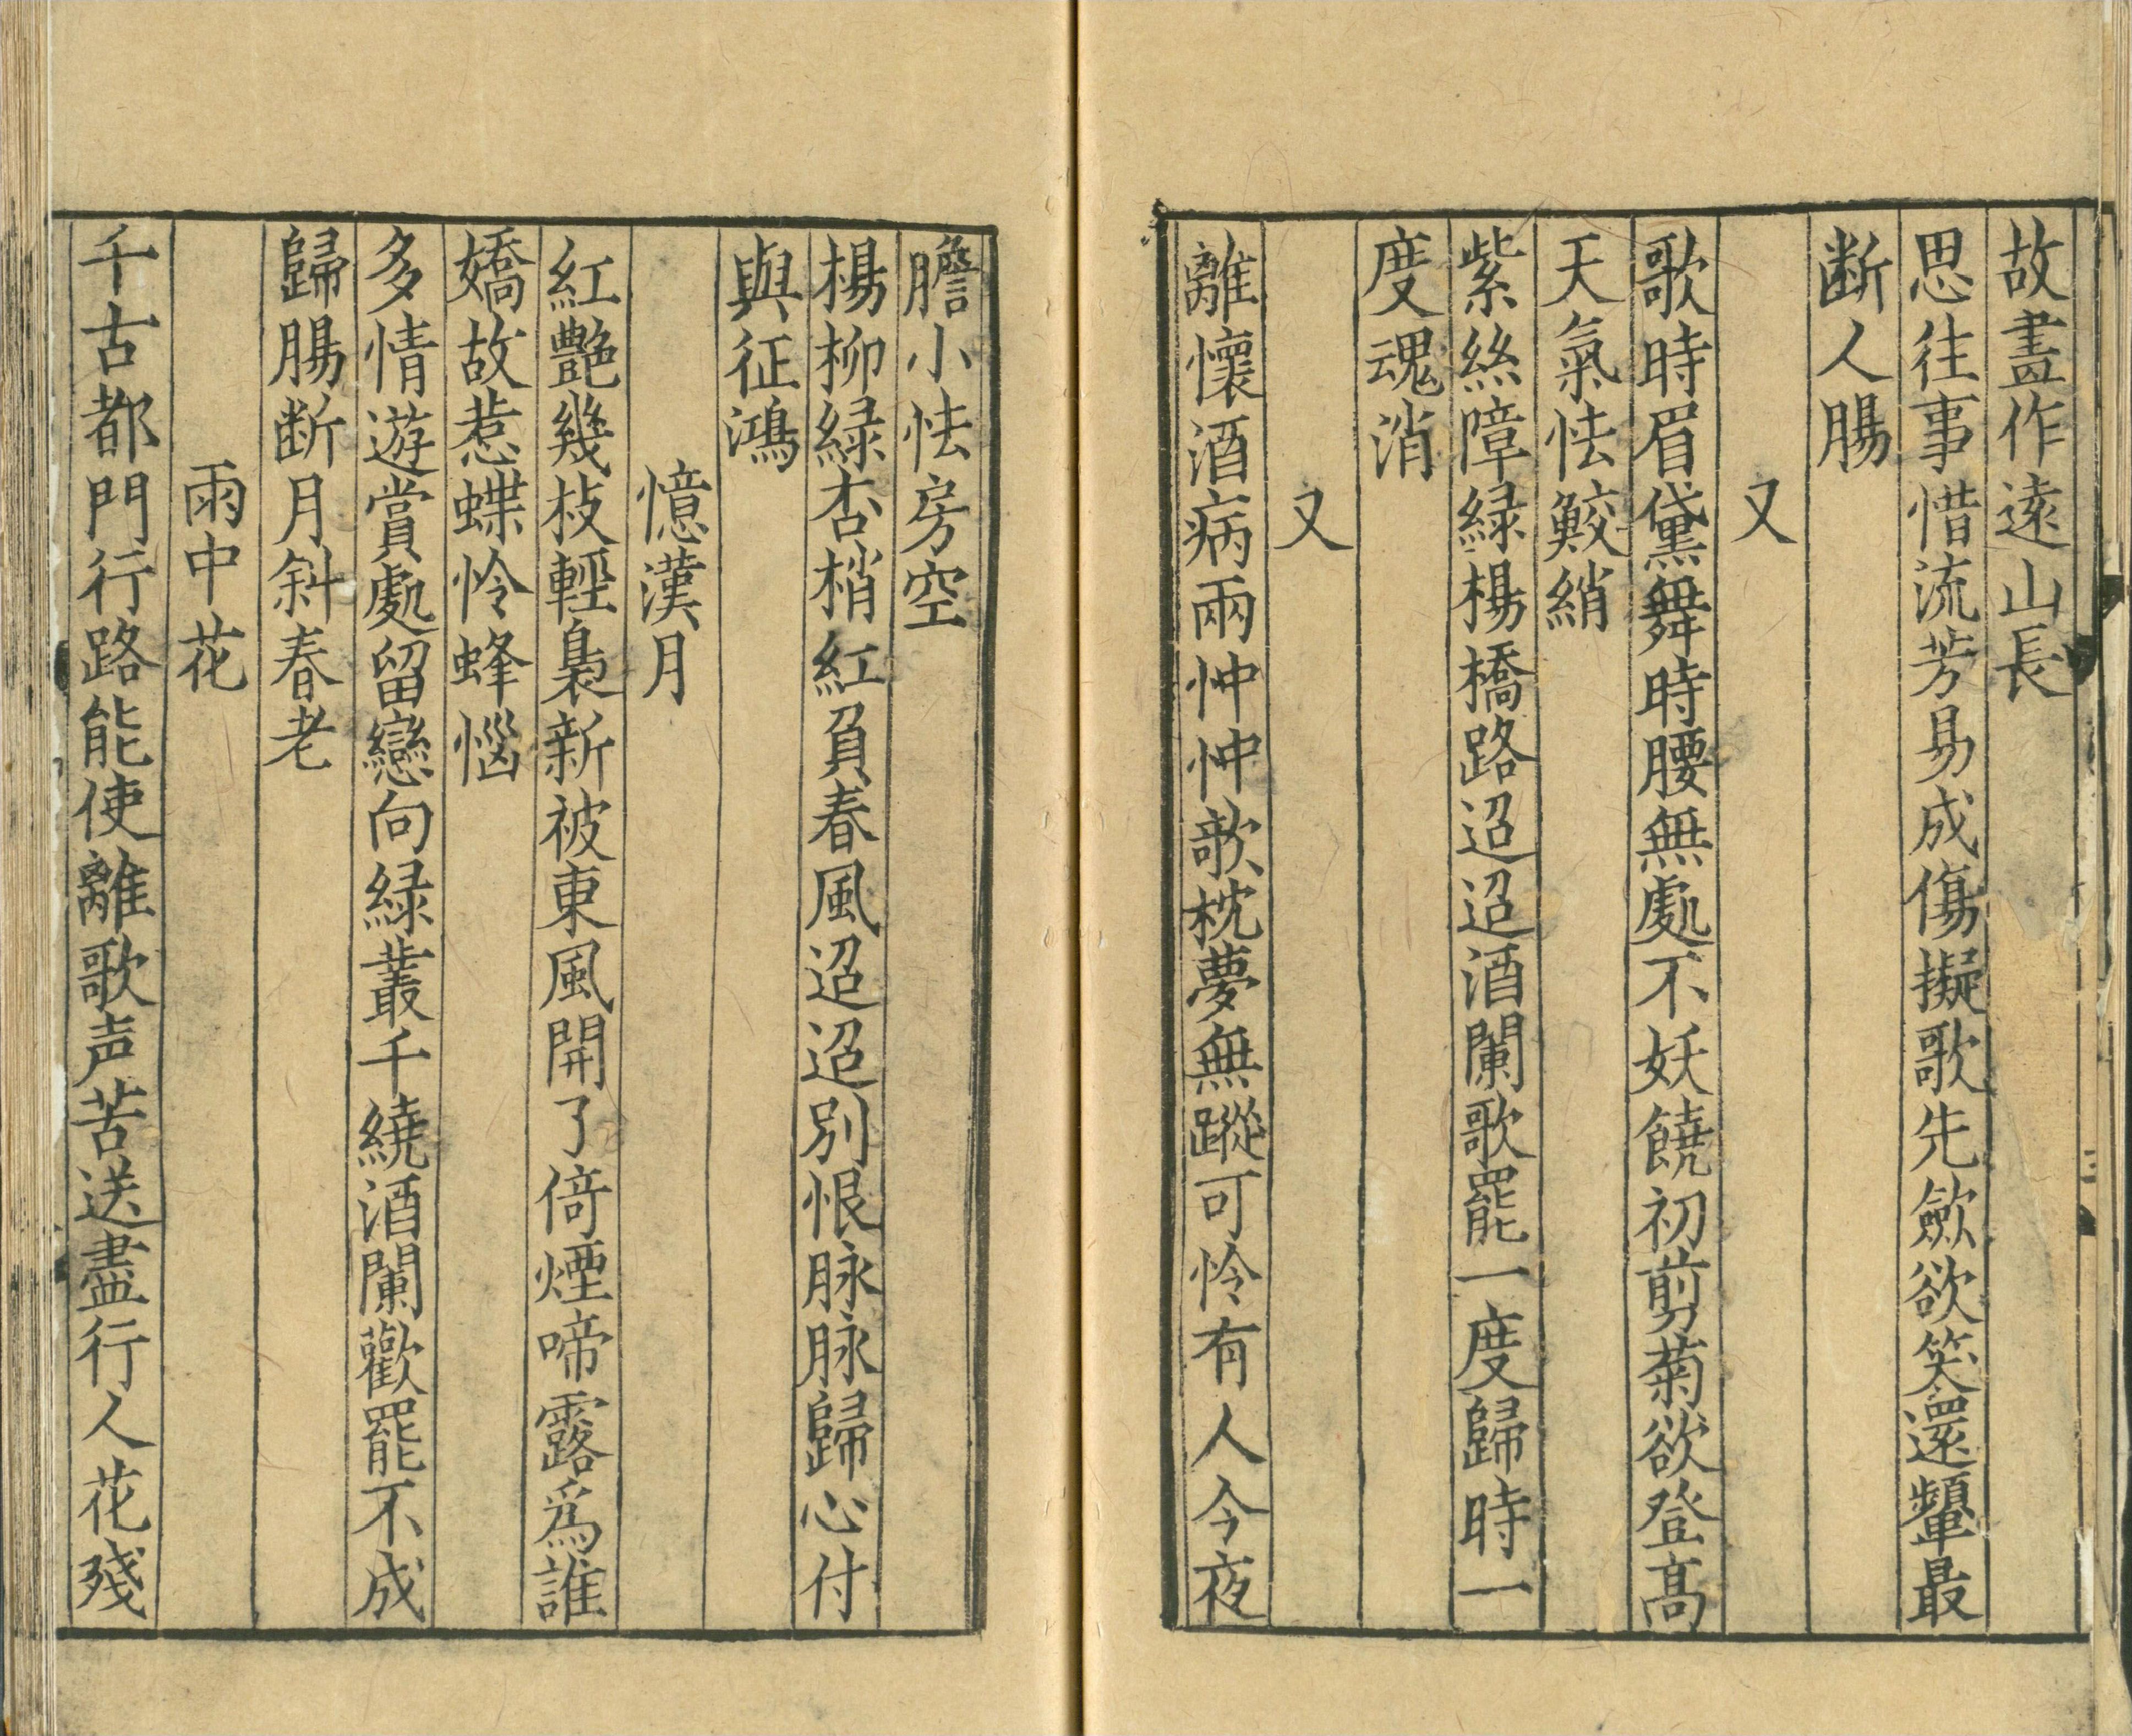 故畫作遠山長
思往事惜流芳易成傷擬歌先歛欲笑還顰最
断人腸
又
歌時眉黛舞時腰無處不妖饒初剪菊欲登髙
天氣怯鮫綃
紫絲障緑楊橋路迢迢酒闌歌罷一度歸時一
度魂消
又
離懷酒病兩忡忡欹枕夢無蹤可怜有人今夜
膽小怯房空
楊柳緑杏梢紅負春風迢迢别恨脉脉歸心付
與征鴻
憶漢月
紅艶幾枝輕裊新被東風開了倚煙啼露爲誰
嬌故惹蝶怜蜂惱
多情遊賞處留戀向緑叢千繞酒闌歡罷不成
歸腸断月斜春老
雨中花
千古都門行路能使離歌声苦送盡行人花殘